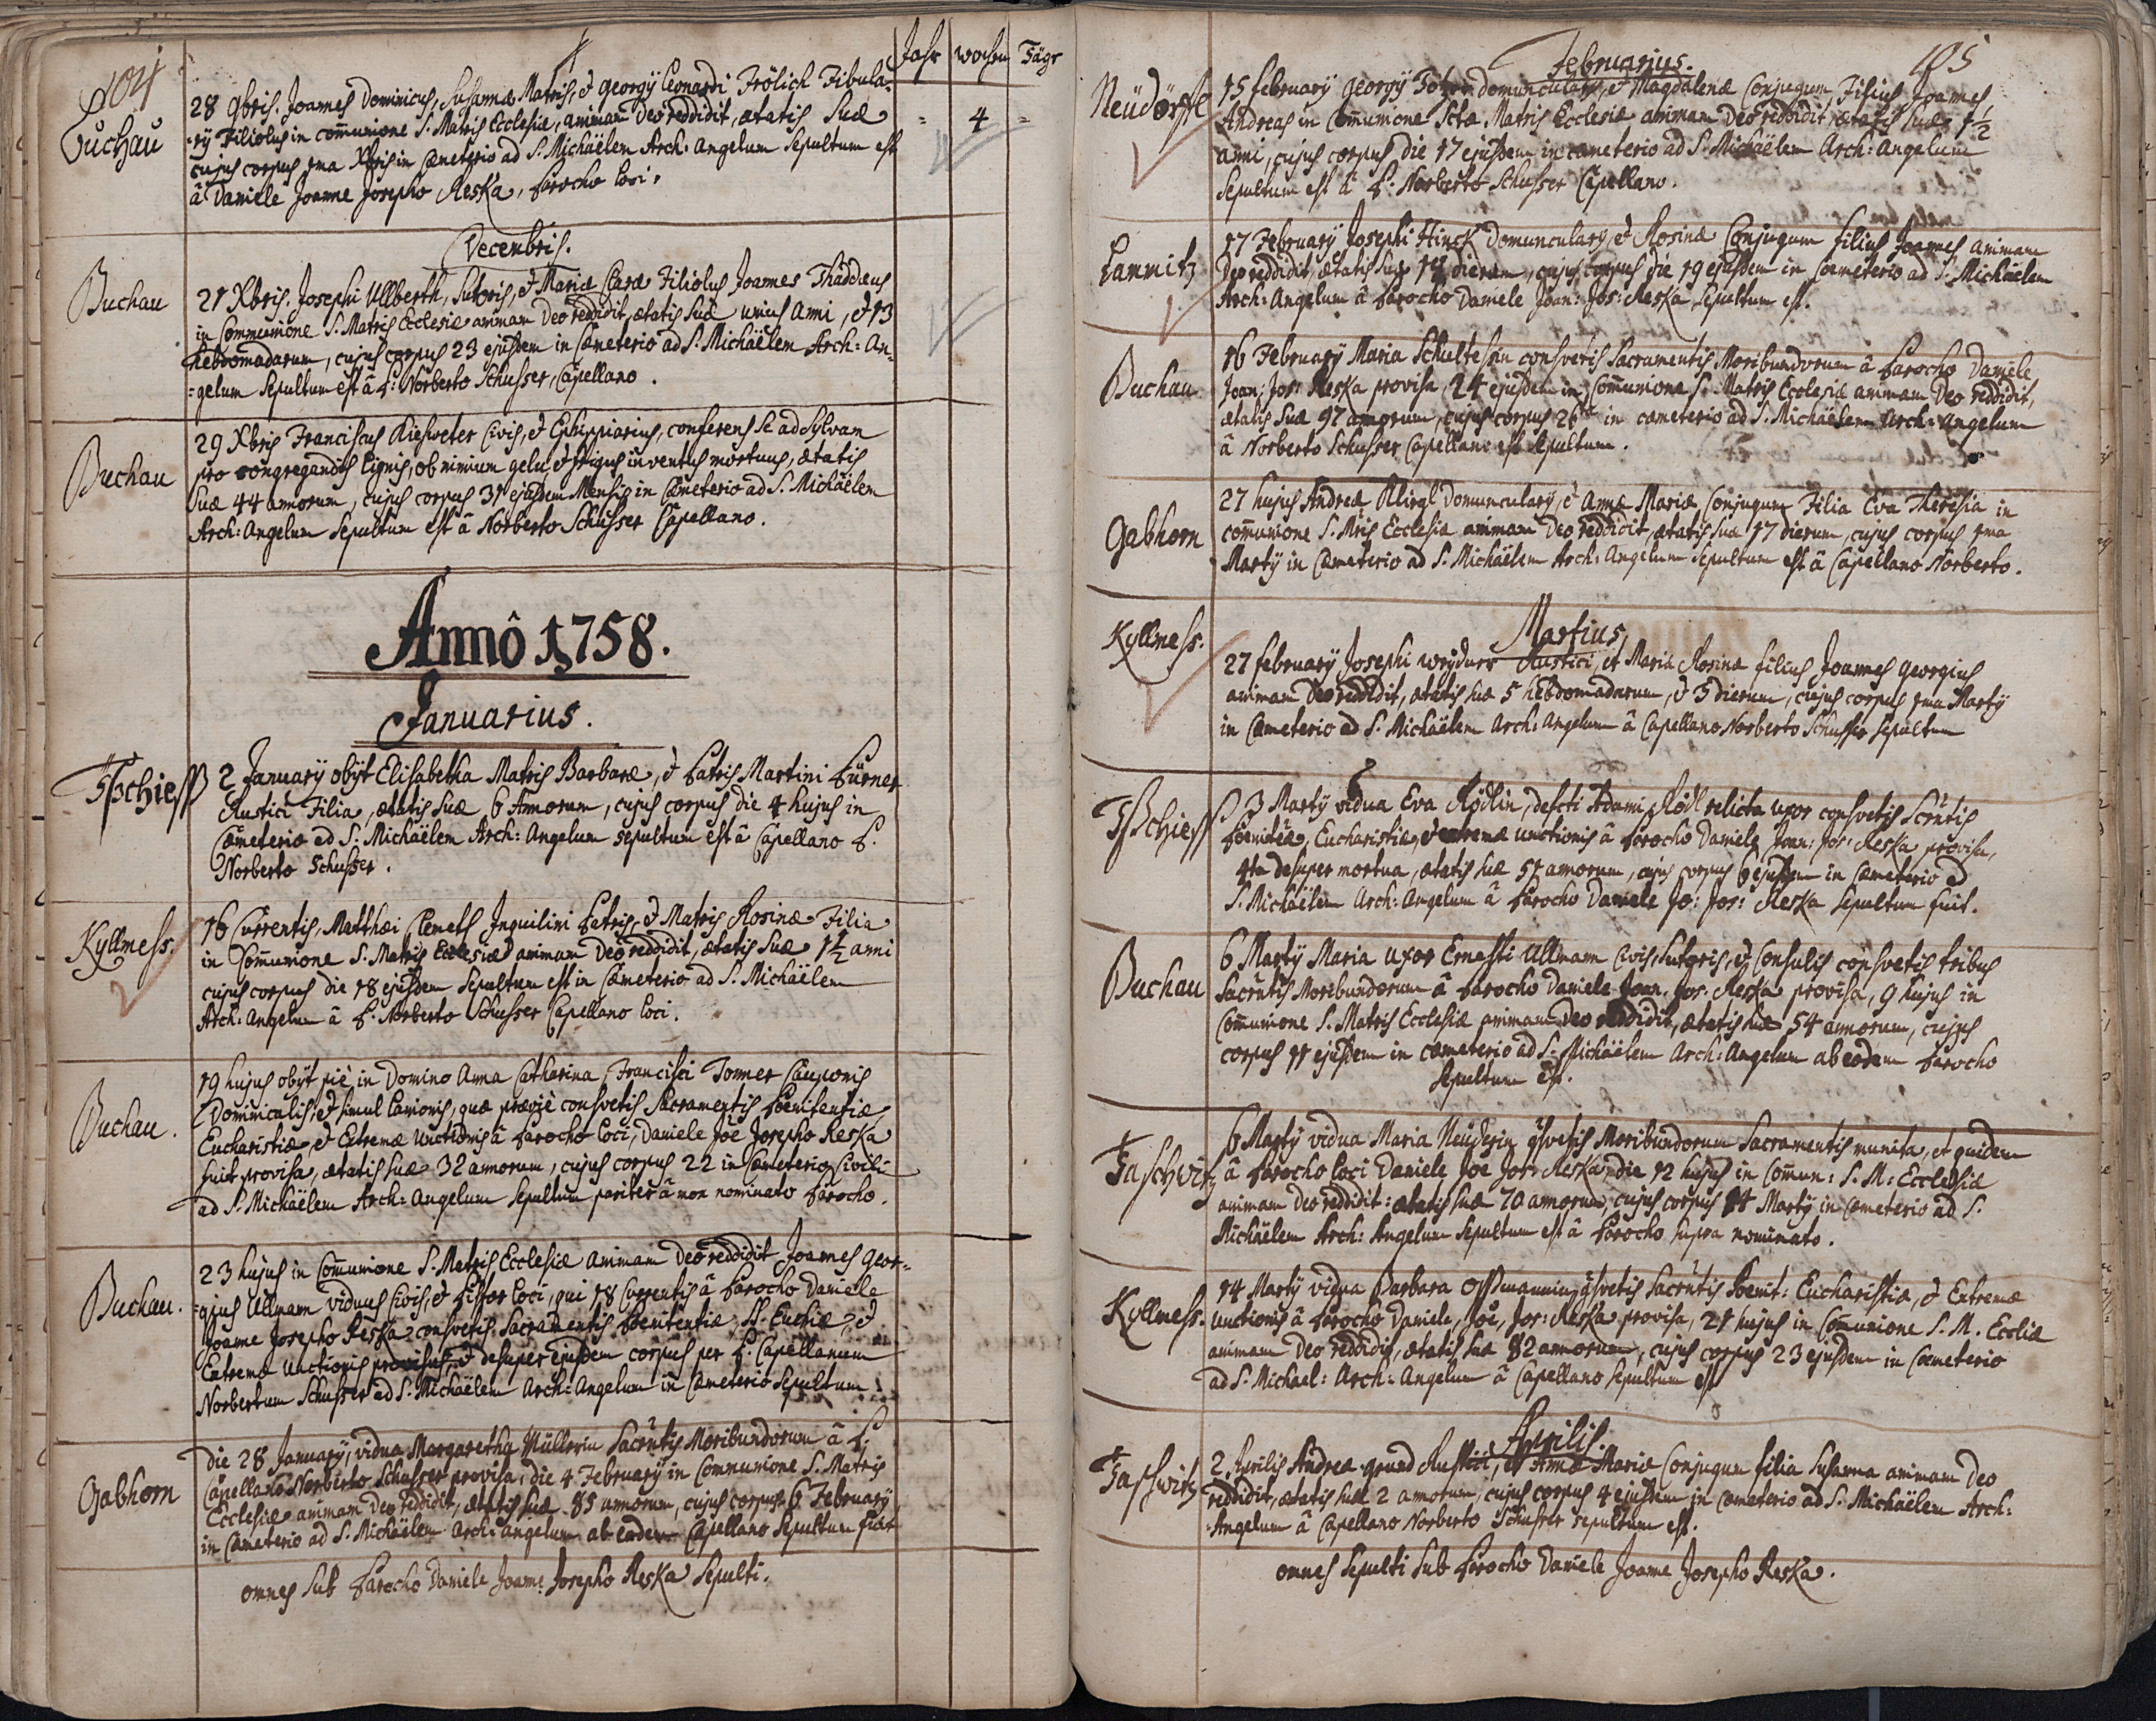 104
Jahr wochen Täge
Buchau
28 9bris. Joannes Dominicus, Susannæ Matris, & Georgÿ Leonardi Frölich Fibula-
=rÿ Filiolus in com̄unione S. Matris Ecclesiæ, animam Deo reddidit, ætatis suæ = 4 =
cujus corpus 1ma Xbris in Cæmeterio ad S. Michäëlem Arch: Angelum Sepultum est
â Daniele Joanne Josepho Reska, Parocho loci.
Decembris.
Buchau
21 Xbris. Josephi Ullberth, Sutoris, & Mariæ Claræ Filiolus Joannes Thaddeus
in Communione S. Matris Ecclesiæ animam Deo reddidit, ætatis suæ unius Anni, & 13
hebdomadarum, cujus corpus 23 ejusdem in Cæmeterio ad S. Michäëlem Arch: An-
=gelum Sepultum est â P: Norberto Schusser, Capellano.
Buchau
29 Xbris Franciscus Kiesweter Civis, & Ephippiarius, conferens se ad Sylvam
pro congregandis Lignis, ob nimium gelu & frigus inventus mortuus, ætatis
Suæ 44 annorum, cujus corpus 31 ejusdem Mensis in Cæmeterio ad S. Michäëlem
Arch: Angelum Sepultum est â Norberto Schusser Capellano.
Annô 1758.
Januarius.
Tschieß
2 Januarÿ obÿt Elisabetha Matris Barbaræ, & Patris Martini Pürner
Rustici Filia, ætatis suæ 6 Annorum, cujus corpus die 4 hujus in
Cæmeterio ad S. Michäëlem Arch: Angelum sepultum est â Capellano P.
Norberto Schusser.
Kyllmess.
16 Currentis, Matthæi Clemeth Inquilini Patris, & Matris Rosinæ Filia
in Com̄unione S. Matris Ecclesiæ animam Deo reddidit, ætatis suæ 1½ anni
cujus corpus die 18 ejusdem Sepultum est in Cæmeterio ad S. Michäëlem
Arch: Angelum â P. Norberto Schusser Capellano loci.
Buchau.
19 hujus obÿt piè in Domino Anna Catharina, Francisci Tonner Cauponis
Dominicalis, & simul Lanionis, quæ præviè consvetis Sacramentis Pœnitentiæ
Eucharistiæ, & Extremæ Unctionis â Parocho loci, Daniele Joē Josepho Reska
fuit provisa, ætatis suæ 32 annorum, cujus corpus 22 in Cæmeterio Civili
ad S. Michäëlem Arch: Angelum Sepultum pariter â mox nominato Parocho.
Buchau.
23 hujus in Com̄unione S. Matris Ecclesiæ animam Deo reddidit Joannes Geor-
=gius Ullmann viduus Civis, & Pistor loci, qui 18 Currentis â Parocho Daniele
Joanne Josepho Reska consvetis Sacramentis Pœnitentiæ, SS. Euchiæ, &
Extremæ Unctionis provisus, & desuper ejusdem corpus per P. Capellanum
Norbertum Schusser ad S. Michäëlem Arch: Angelum in Cæmeterio Sepultum.
Gabhorn
Die 28 Januarÿ, vidua Margaretha Müllerin Sacrētis Moribundorum â P.
Capellano Norberto Schusser provisa, die 4 Februarÿ in Communione S. Matris
Ecclesiæ animam Deo reddidit, ætatis suæ 85 annorum, cujus corpus 6 Februarÿ
in Cæmeterio ad S. Michäëlem Arch: angelum ab eodem Capellano Sepultum fuit
omnes Sub Parocho Daniele Joanne Josepho Reska Sepulti.
105
Februarius.
Neüdörffl
15 Februarÿ Georgÿ domuncularÿ, & Magdalenæ Conjugum, Filius Joannes
Andreas in Com̄unione Sctæ. Matris Ecclesiæ animam Deo reddidit, ætatis suæ 1½
anni, cujus corpus die 17 ejusdem in cæmeterio ad S. Michäëlem Arch: Angelum
Sepultum est â P. Norberto Schusser Capellano.
17 Februarÿ Josephi Hinck Domuncularÿ, & Rosinæ Conjugum filius Joannes animam
Deo reddidit, ætatis suæ dierum, cujus corpus die 19 ejusdem in Cœmeterio ad S. Michäëlem
Arch: Angelum â Parocho Daniele Joan: Jos: Reska Sepultum est.
Buchau
16 Februarÿ Maria Schultessin consvetis Sacramentis Moribundorum â Parocho Daniele
Joan: Jos: Reska provisa, 24 ejusdem in Com̄unione S. Matris Ecclesiæ animam Deo reddidit,
ætatis suæ 97 annorum, cujus corpus 26 in cæmeterio ad S. Michäëlem Arch: Angelum
â Norberto Schusser Capellano est Sepultum.
Gabhorn
27 hujus Andreæ Klirgl Domuncularÿ & Annæ Mariæ Conjugum Filia Eva Theresia in
com̄unione S. Mtris Ecclesiæ animam Deo reddidit, ætatis suæ 17 dierum, cujus corpus 1ma
Martÿ in Cæmeterio ad S. Michäëlem Arch: Angelum Sepultum est â Capellano Norberto.
Martius,
Kyllmess.
27 februarÿ Josephi Rustici, et Mariæ Rosinæ filius Joannes Georgius
animam Deo reddidit, ætatis suæ 5 hebdomadarum, & 5 dierum, cujus corpus 1ma Martÿ
in Cæmeterio ad S. Michäëlem Arch: Angelum â Capellano Norberto Schusser Sepultum
Tschieß
3 Martÿ vidua Eva Rödlin, defcti Adami Rödl relicta uxor consvetis Scrētis
Pœnitæ, Eucharistiæ, & extremæ unctionis â Parocho Daniele Joan: Jos: Reska provisa,
4ta desuper mortua, ætatis suæ 51 annorum, cujus corpus 6 ejusdem in Cæmeterio ad
S. Michäëlem Arch: Angelum â Parocho Daniele Jo: Jos: Reska Sepultum fuit.
Buchau
6 Martÿ Maria uxor Ernesti Ullmann Civis, Sutoris, & Consulis consvetis tribus
Sacrētis Moribundorum â Parocho Daniele Joan. Jos: Reska provisa, 9 hujus in
Com̄unione S. Matris Ecclesiæ animam Deo reddidit, ætatis suæ 54 annorum, cujus
corpus 11 ejusdem in cæmeterio ad S. Michäëlem Arch: Angelum ab eodem Parocho
Sepultum est.
Taschwitz
6 Martÿ vidua Maria Neüderin Moribundorum Sacramentis munita, et quidem
â Parocho loci Daniele Joe Jos: Reska, die 12 hujus in Com̄un: S. M: Ecclesiæ
animam Deo reddidit: ætatis suæ 70 annorum, cujus corpus 14 Martÿ in Cæmeterio ad S.
Michäëlem Arch: Angelum Sepultum est â Parocho supra nominato.
Kyllmess.
14 Martÿ vidua Barbara Ossmannin Sacrētis Pœnit: Eucharistiæ, & Extremæ
Unctionis â Parocho Daniele, Joe, Jos: Reska provisa, 21 hujus in Com̄unione S. M. Eccliæ
animam Deo reddidit, ætatis suæ 82 annorum, cujus corpus 23 ejusdem in Cœmeterio
ad S. Michael: Arch: Angelum â Capellano Sepultum est
Aprilis.
Taschwitz
2 Aprilis Andreæ Grund Rustici, & Annæ Mariæ Conjugum filia Susanna animam Deo
reddidit, ætatis suæ 2 annorum, cujus corpus 4 ejusdem in Cæmeterio ad S. Michäëlem Arch:
Angelum â Capellano Norberto Schusser sepultum est.
omnes Sepulti Sub Parocho Daniele Joanne Josepho Reska.